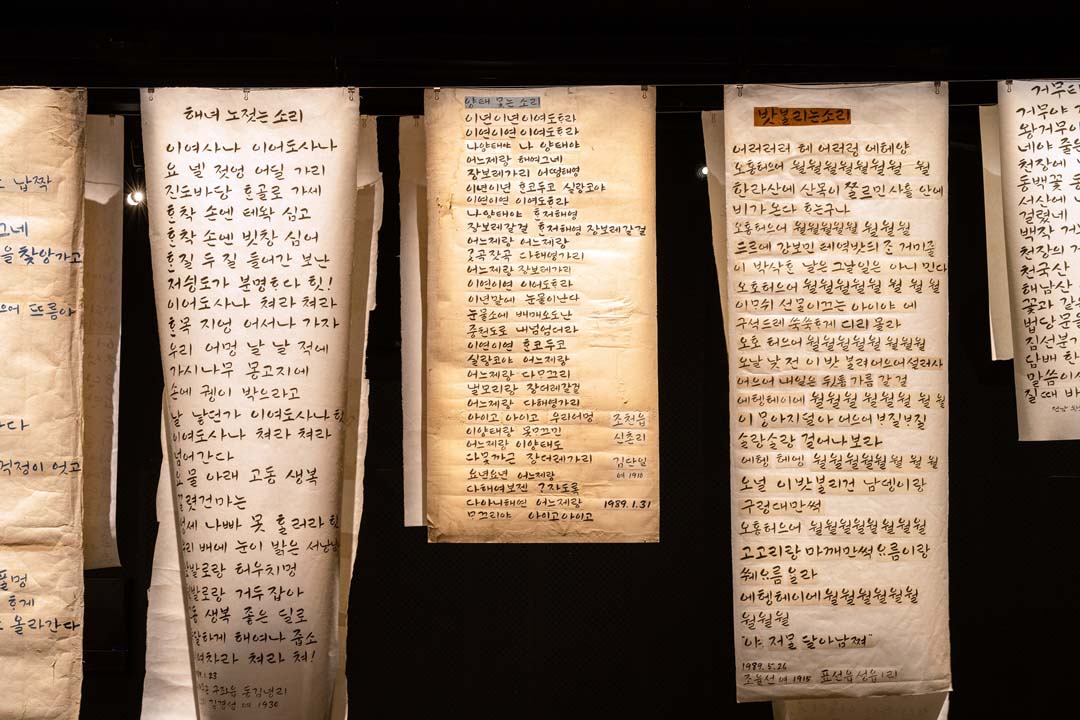 납짝
그네
을 찾앙가고
뜨름아
다
걱정이 엇고
멍
ᄒᆞ게
올라간다
해녀 노젓는 소리
이여사나 이어도사나
요 넬 젓엉 어딜 가리
진도바당 ᄒᆞᆫ골로 가세
ᄒᆞᆫ착 손엔 테왁 심고
ᄒᆞᆫ착 손엔 빗창 심어
ᄒᆞᆫ질 두 질 들어간 보난
저싕도가 분명ᄒᆞ다 힛!
이어도사나 쳐라 쳐라
ᄒᆞᆫ목 지엉 어서나 가자
우리 어멍 날 날 적에
가시나무 몽고지에
손에 궹이 박으라고
날 낳던가 이여도사나 힛
이여도사나 쳐라 쳐라
넘어간다
요 물 아래 고동 생복
마는
나빠 못 ᄒᆞ더라 힛
배에 눈이 밝은
발로랑 터우치멍
발로랑 거두잡아
생복 좋은 딜로
ᄒᆞ게 해여나 줍소
쳐라 쳐!
1.23
구좌읍 동김녕리
김경성 여 1930
양태 ᄆᆞᆺ는 소리
이년이년 이여도ᄒᆞ라
이연이연 이여도ᄒᆞ라
나 양태야 나 양태야
어느제랑 해여그네
장보레가리 어떵해영
이년이년 ᄒᆞᆫ코두코 실랑코야
이연이연 이여도ᄒᆞ라
나 양태야 ᄒᆞᆫ저해영
장보레갈걸 ᄒᆞᆫ저해영 장보레갈걸
어느제랑 어느제랑
ᄀᆞᆺ곳잣곳 다해영가리
어느제랑 장보레가리
이연이연 이여도ᄒᆞ라
이년말에 눈물이난다
눈물소에 배매오도난
중원도로 내넘엄더라
이연이연 ᄒᆞᆫ코두코
실랑코야 어느제랑
어느제랑 다ᄆᆞ끄리
낼모리랑 장더레갈걸
어느제랑 다해영가리
아이고 아이고 우리어멍
이양태랑 못ᄆᆞ끄민
어느제랑 이양태도
다ᄆᆞᆺ까근 장더레가리
요년요년 어느제랑
다해여보젠 ᄀᆞ자도록
다아니해연 어느제랑
ᄆᆞ끄리야 아이고아이고
조천읍
신촌리
김단일
여 1910
1989.1.31
밧 ᄇᆞᆯ리는 소리
어러러러 헤 어러럴 에헤양
오홍허으어 월월월월월월월 월
한라산에 산목이 ᄍᆞᆯ르민 사을 안에
비가 온다 ᄒᆞ는구나
오홍허으어 월월월월월 월월월
드르에 간 보민 테역밧의 준 거미줄
이 박삭ᄒᆞᆫ 날은 그날 일은 아니 민다
오호허으어 월월월월월 월 월 월
이 ᄆᆞ쉬 선ᄆᆞᆯ 이끄는 아이야 에
구석드레 쑥쑥ᄒᆞ게 디리 몰라
오호 허으어 월월월월 월월월월
오날 낮 전 이 밧 ᄇᆞᆯ려 어으어 설러사
어으어 내일은 뒷ᄑᆞᆯ 가름 갈 걸
에헹헤이에 월월월월월 월 월 월
이 몽아지덜아 어으어 ᄇᆞ질ᄇᆞ질
솔랑솔랑 걸어나 보라
에헹 헤헹 월월월월월월 월 월 월
오널 이 밧 ᄇᆞᆯ리건 남뎅이랑
구렁대만썩
오홍허으어 월월월월월 월월월
고고리랑 마깨만썩 ᄋᆢ름이랑
쒜ᄋᆢ름 을라
에헹헤이에 월월월월월월월
월월월
“야 저 ᄆᆞᆯ 달아남쪄”
1989.5.26
조늘선 여 1915 표선읍 성읍1리
거무타
거무야
왕거무야
네야 줄은
천장에
동백꽃
서산에
걸렸네
백작
천장의
천국산
태남산
꽃과
법당문
짐선분
담배 한
말씀이
질 때